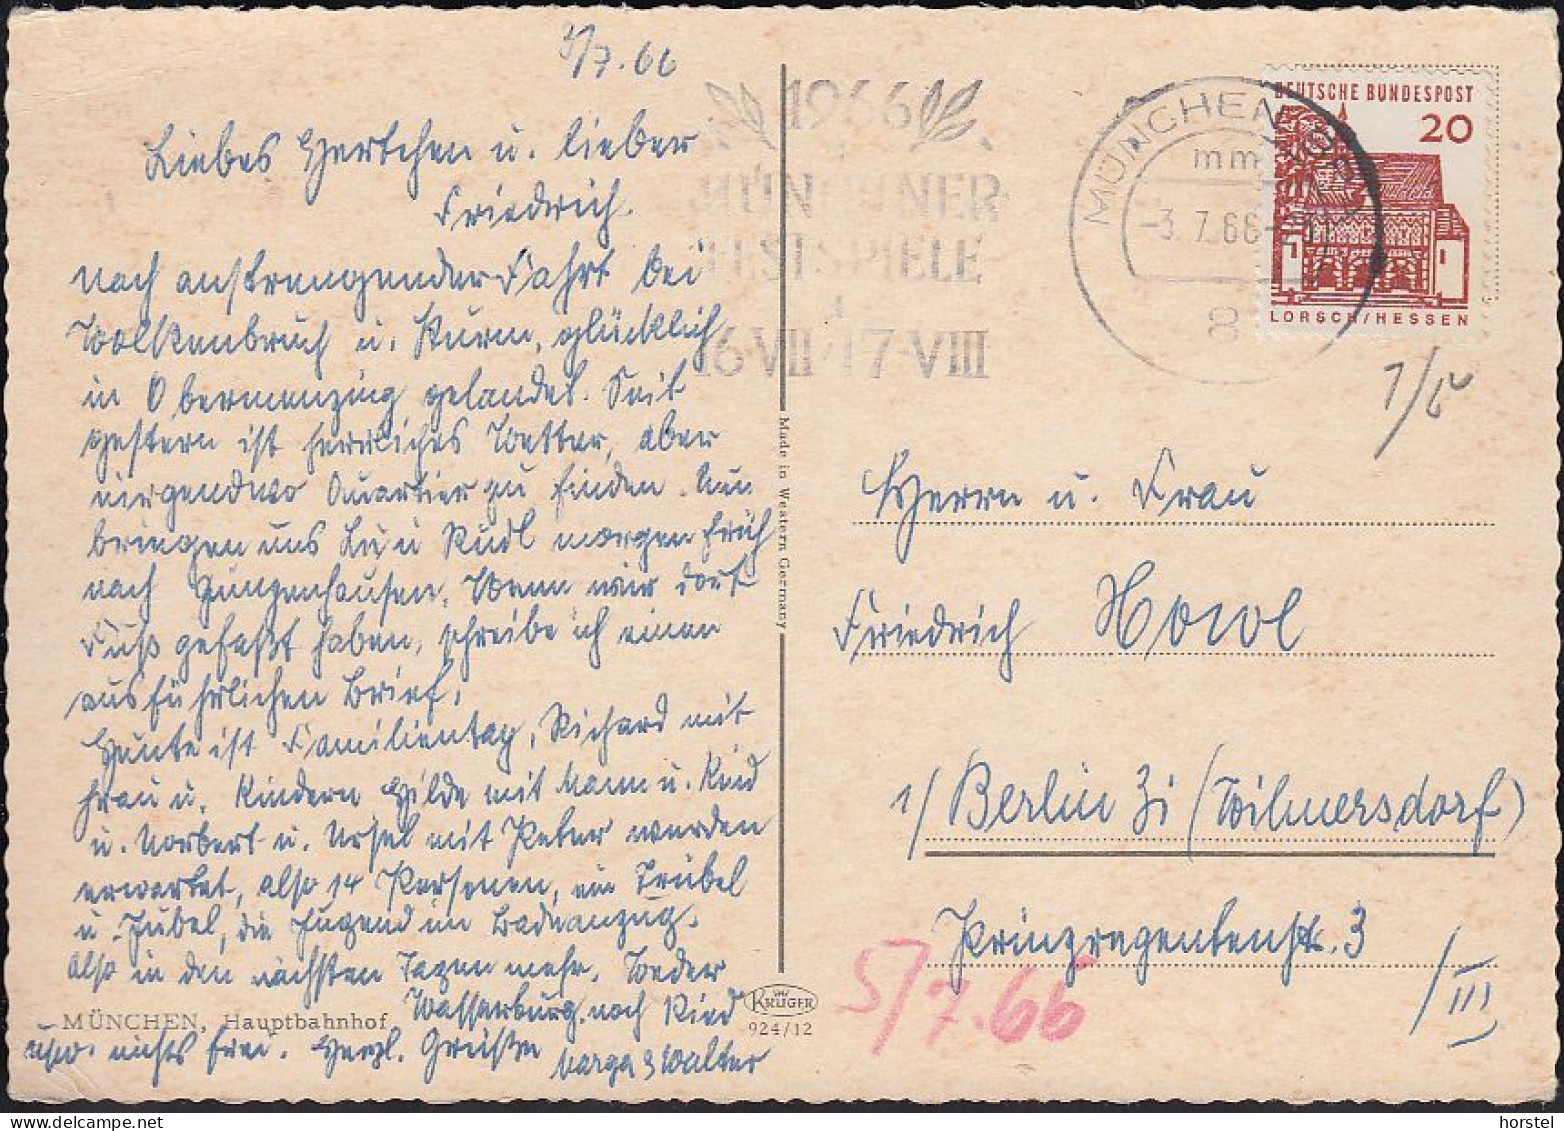 3/7.66
Liebes Hertchen u. lieber
Friedrich.
nach anstrengender Fahrt bei
Wolkenbruch u. Sturm, glücklich
in Obermenzing gelandet. Seit
gestern ist herrliches Wetter, aber
nirgendwo Quartier zu finden. Nun
bringen uns Lu u Rudl morgen früh
nach Gunzenhausen. Wenn wir dort
Fuß gefaßt haben, schreibe ich einen
ausführlichen Brief.
Heute ist Familientag, Richard mit
Frau u. Kindern Hilde mit Mann u. Kind
u. Norbert u. Ursel mit Peter werden
erwartet, also 14 Personen, ein Trubel
u. Jubel, die Jugend im Badeanzug.
Also in den nächsten Tagen mehr. Weder
Wasserburg, noch Ried
usw. nichts frei. Herzl. Grüße
Marga & Walter
MÜNCHEN, Hauptbahnhof
KRÜGER
924/12
Made in Western Germany
1966
MÜNCHNER
FESTSPIELE
16·VII-17·VIII
MÜNCHEN
mm
-3. 7. 66-
8
DEUTSCHE BUNDESPOST
20
LORSCH/HESSEN
Herrn u. Frau
Friedrich
1/ Berlin 31 (Wilmersdorf)
Prinzregentenstr. 3
/III
5/7.66